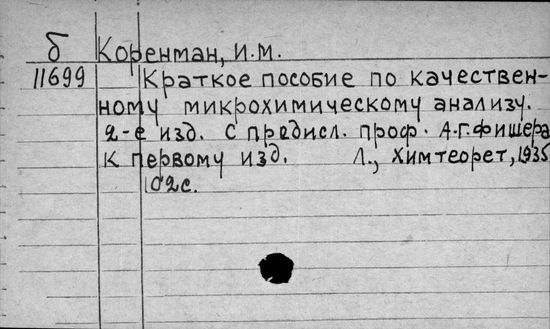 б Коренман, И.М.
11699 Краткое пособие по качествен-
ному микрохимическому анализу.
2-е изд. С предисл. проф. А.Г.Фишера
к первому изд. Л., Химтеорет, 1935
102с.